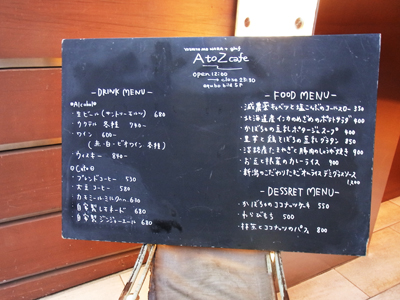 YOSHITOMO NARA + graf
A to Z cafe
open 12:00
→ close 23:30
equbo bldg 5F
- DRINK MENU -
Alcohol
・生ビール (サントリーモルツ) 680
・カクテル 各種 740~
・ワイン 600~
(赤・白・ビオワイン 各種)
・ウィスキー 840~
Cafe
・ブレンドコーヒー 530
・大豆コーヒー 580
・カモミールミルクティー 630
・自家製レモネード 680
・自家製ジンジャーエール 680
- FOOD MENU -
・減農薬キャベツと塩こんぶのコールスロー 350
・北海道産インカのめざめのポテトサラダ
・かぼちゃの豆乳ポタージュスープ
・里芋と鶏とごぼうの豆乳グラタン 850
・淡路産たまねぎと豚肉のしょうが焼き 900
・お豆と根菜のカレーライス 900
・新潟のこだわりたまごのオムライスデミグラスソース
1,000
- DESSRET MENU -
・かぼちゃのココナッツケーキ 550
・わらびもち 500
・抹茶とココナッツのパフェ 800